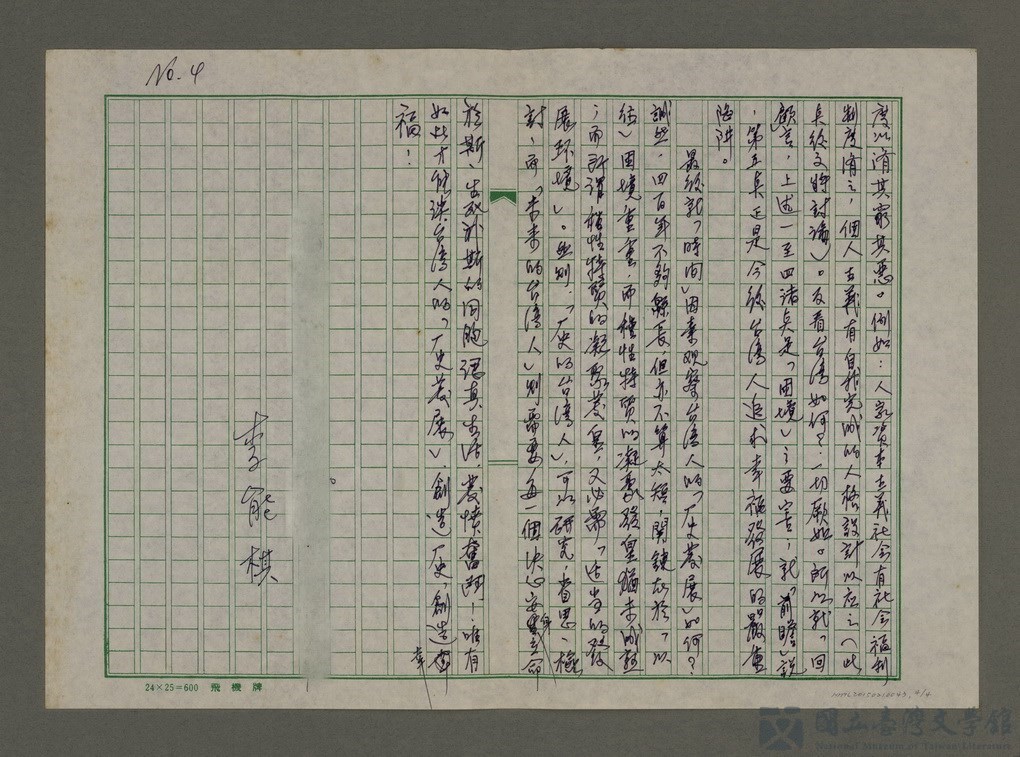 No. 4
度以濟其窮其惡。例如:人家資本主義社會有社會福利
制度濟之,個人主義有自我完成的人格設計以應之(此
點後文將討論)。反看台灣如何?一切厥如。所以就「回
顧」言,上述一至四諸點是「困境」之要害;就「前瞻」說
,第五點正是今後台灣人追求幸福發展的最重
陷阱。
最後就「時間」因素觀察台灣人的「歷史發展」如何?
誠然,四百年不夠縣長,但亦不算太短,關鍵在於「以
往」困境重重,而個性特質的凝聚發皇猶未成熟
;而所謂個性特質的凝聚發皇,又必需「适當的發
展環境」。然則,「歷史的台灣人」,可以研究,省思、檢
討,而「未來的台灣人」則需要每一個決心安身立命
於斯、出死於斯的同胞認真生活,發憤奮鬥!唯有
如此才能談台灣人的「歷史發展」,創造歷史,創造幸
福!
李能棋
24×25=600 飛機牌
國立臺灣文學館
National Museum of Taiwan Literature